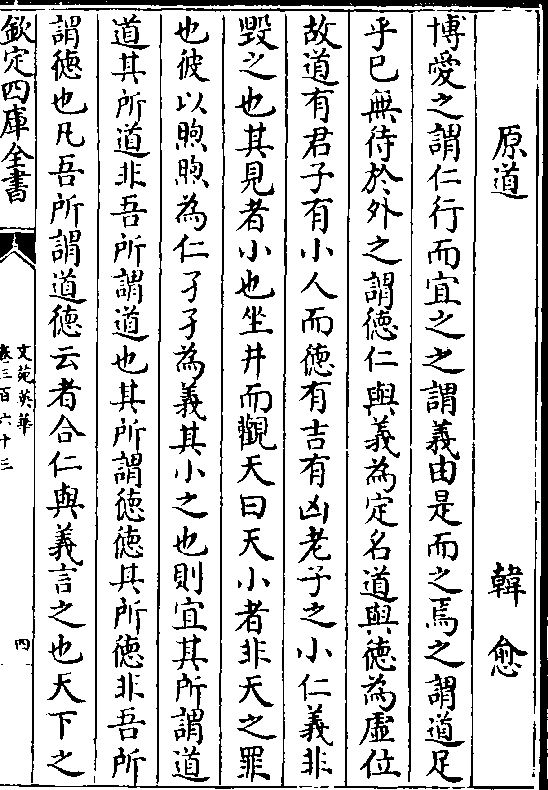 原道 韓愈
博愛之謂仁行而宜之之謂義由是而之焉之謂道足
乎已無待於外之謂徳仁與義為定名道與徳為虛位
故道有君子有小人而徳有吉有凶老子之小仁義非
毀之也其見者小也坐井而觀天曰天小者非天之罪
也彼以煦煦為仁孑孑為義其小之也則宜其所謂道
道其所道非吾所謂道也其所謂徳徳其所徳非吾所
謂徳也凡吾所謂道徳云者合仁與義言之也天下之
欽定四庫全書
文苑英華
卷三百六十三
四